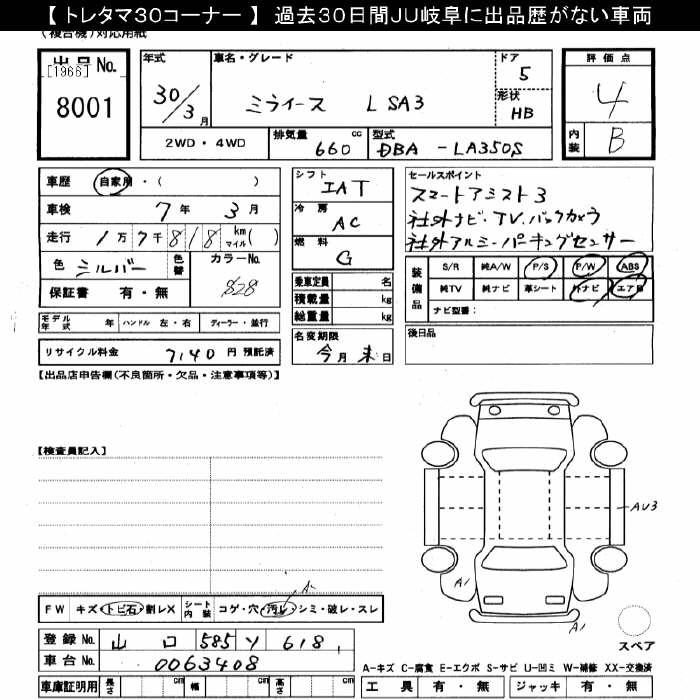 【 トレタマ30コーナー 】 過去30日間JU岐阜に出品歴がない車両
(複合機)対応用紙
出品No.
[1966]
8001
年式
30/3月
車名・グレード
ミライース L SA3
ドア
5
形状
HB
2WD・4WD
排気量 660 cc
型式 DBA - LA350S
評価点
4
内装 B
車歴 自家用・( )
車検 7年 3月
走行 1万7千818 km マイル( )
色 シルバー 色替
カラーNo.
S28
保証書 有・無
シフト
IAT
冷房
AC
燃料
G
乗車定員 名
積載量 kg
総重量 kg
セールスポイント
スマートアシスト3
社外ナビ・TV.バックカメラ
社外アルミ・パーキングセンサー
装備品
S/R 純A/W P/S P/W ABS
純TV 純ナビ 革シート 外ナビ エアB
ナビ型番:
モデル年式 年 ハンドル 左・右 ディーラー・並行
リサイクル料金 7,140 円 預託済
名変期限
今月末日
後日品
【出品店申告欄(不良箇所・欠品・注意事項等)】
【検査員記入】
AU3
A1
A1
スペア
A-
FW キズ・トビ石・割レX シート内装 コゲ・穴・汚レ・シミ・破レ・スレ
登録No. 山口 585 ソ 618
車台No. 0063408
A-キズ C-腐食 E-エクボ S-サビ U-凹ミ W-補修 XX-交換済
車庫証明用 長さ cm 幅 cm 高さ cm
工具 有・無 ジャッキ 有・無